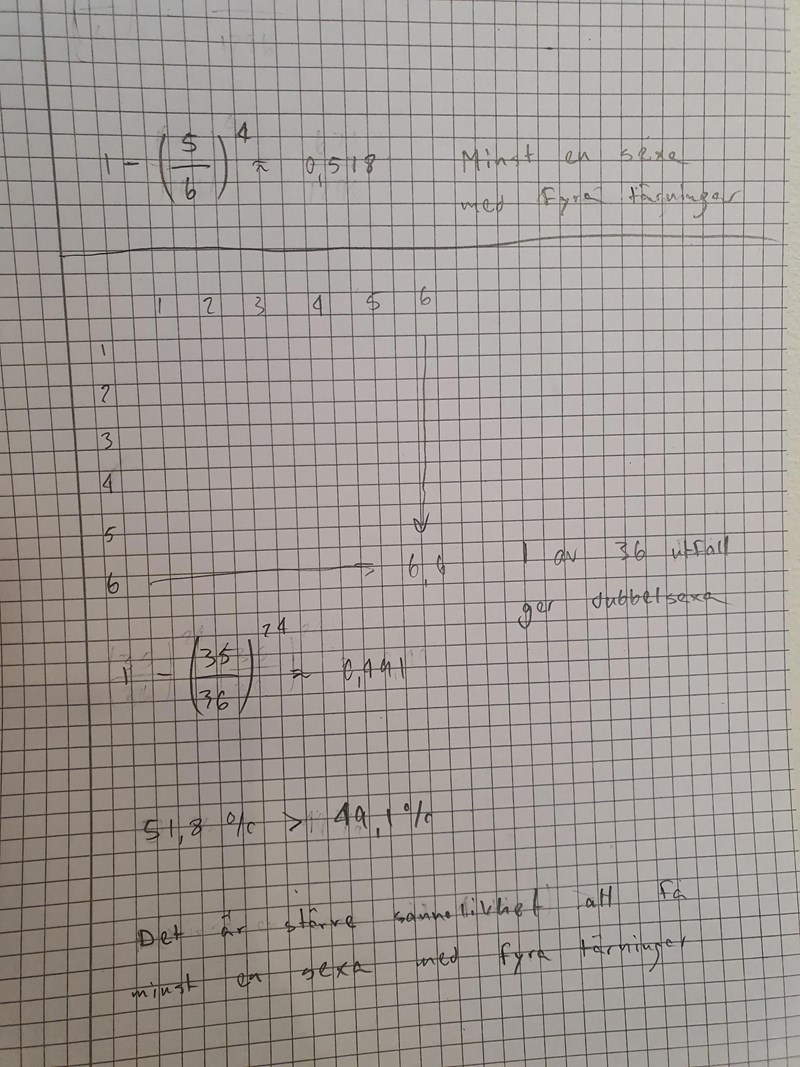 1 - (5/6)^4 ≈ 0,518 Minst en sexa
med fyra tärningar
1 2 3 4 5 6
1
2
3
4
5
6 6,6 1 av 36 utfall
ger dubbelsexa
1 - (35/36)^24 ≈ 0,491
51,8 % > 49,1 %
Det är större sannolikhet att få
minst en sexa med fyra tärningar